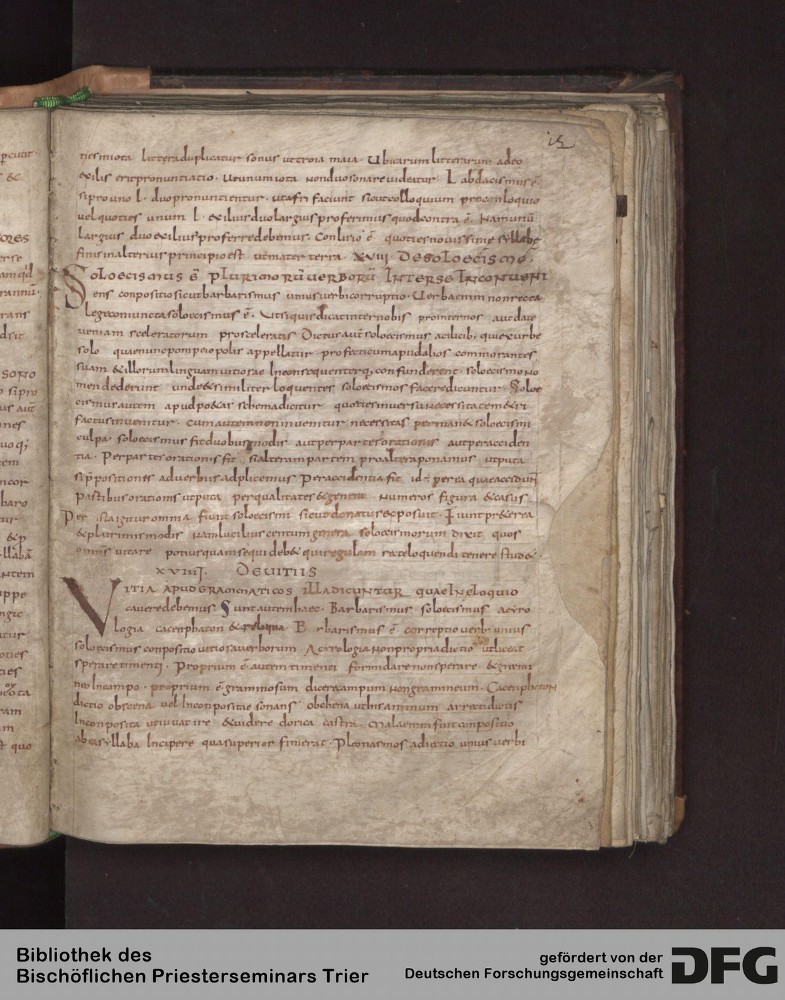 15
ties iniota littera duplicatur sonus ut troia maia. Ubi earum litterarum adeo
exilis erit pronuntiatio. ut unum iota non duo sonare videatur. Labdacismus ē
si pro uno l. duo pronuntientur. ut afri faciunt sicut colloquium pro conloquio
vel quoties unum l. exilius duo largius proferimus quod contra ē. Nam unū
largius duo exilius proferre debemus. Conlisio ē quoties novissimae syllabe
finis in alterius principio est ut mater terra. XVIII DE SOLOECISMO.
SOLOECISMUS Ē PLURIMORŪ VERBORŪ INTER SE INCONVENI
ens conpositio sicut barbarismus unius verbi corruptio. Verba enim non recta
lege coniuncta soloecismus ē. Ut si quis dicat inter nobis pro inter nos. aut date
veniam sceleratorum pro sceleratis. Dictus aūt soloecismus a cilicib; qui ex urbe
solo quae nunc pompeiopolis appellatur profecti cum apud alios commorantes
suam & illorum linguam vitiosae inconsequenterq; confunderent soloecismo no
men dederunt unde & similiter loquentes soloecismos facere dicuntur. Soloe
cismus autem apud po&as schema dicitur quoties in versu necessitate m&ri
factus invenitur. cum autem non invenitur necessitas perman& soloecismi
culpa. soloecismus fit duobus modis aut per partes orationis aut per acciden
tia. Per partes orationis fit si alteram partem pro altera ponamus utputa
si p̄positiones adverbiis adplicemus. Per accidentia fit id ē per ea quae accidunt
partibus orationis utputa per qualitates & genera numeros figuras & casus
Per ista igitur omnia fiunt soloecismi sicut donatus exposuit. Fiunt pr&erea
& plurimis modis nam lucilius centum genera soloecismorum dixit quos
omnes vitare potius quam sequi deb& qui regulam recte loquendi tenere stud&.
XVIIII. DE VITIIS
VITIA APUD GRAMMATICOS ILLA DICUNTUR QUAE IN ELOQUIO
cavere debemus. Sunt autem haec. Barbarismus soloecismus acyro
logia cacenphaton & reliqua. Barbarismus ē correptio verbi unius
soloecismus conpositio vitiosa verborum. Acyrologia non propria dictio ut liceat
sperare timenti. Proprium ē autem timenti formidare non sperare. & gramineo in campo. proprium ē graminosum dicere campum non gramineum. Cacenphaton
dictio obscena vel inconpositae sonans
inconposita ut iuvat ire & videre dorica castra. Mala enim fuit conpositio
ab ea syllaba incipere qua superior finierat. Pleonasmos adiectio unius verbi
Bibliothek des
Bischöflichen Priesterseminars Trier
gefördert von der
Deutschen Forschungsgemeinschaft
DFG